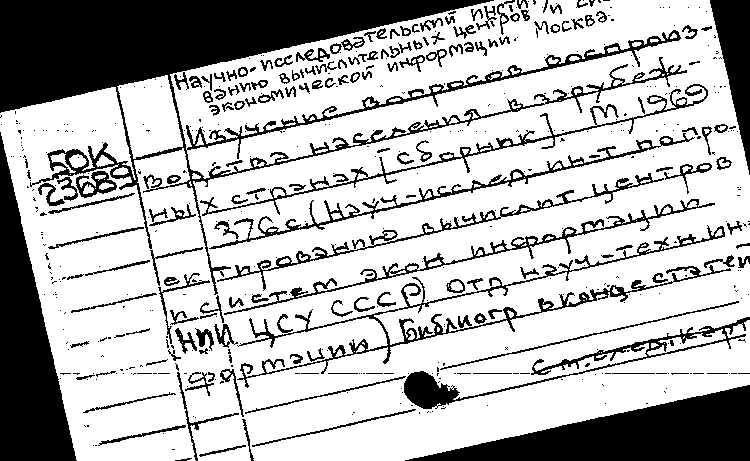 Научно-исследовательский инсти
ванию вычислительных центров и сис
экономической информации. Москва.
Изучение вопросов воспроиз-
БОК
23689
водства населения в зарубеж-
ных странах [сборник]. М., 1969
376с. (Науч.-исслед. ин-т. по про
ектированию вычислит. центров
и систем экон. информации
(НИИ ЦСУ СССР). Отд науч.-техн. ин-
формации) Библиогр в конце статей
См. след. карт